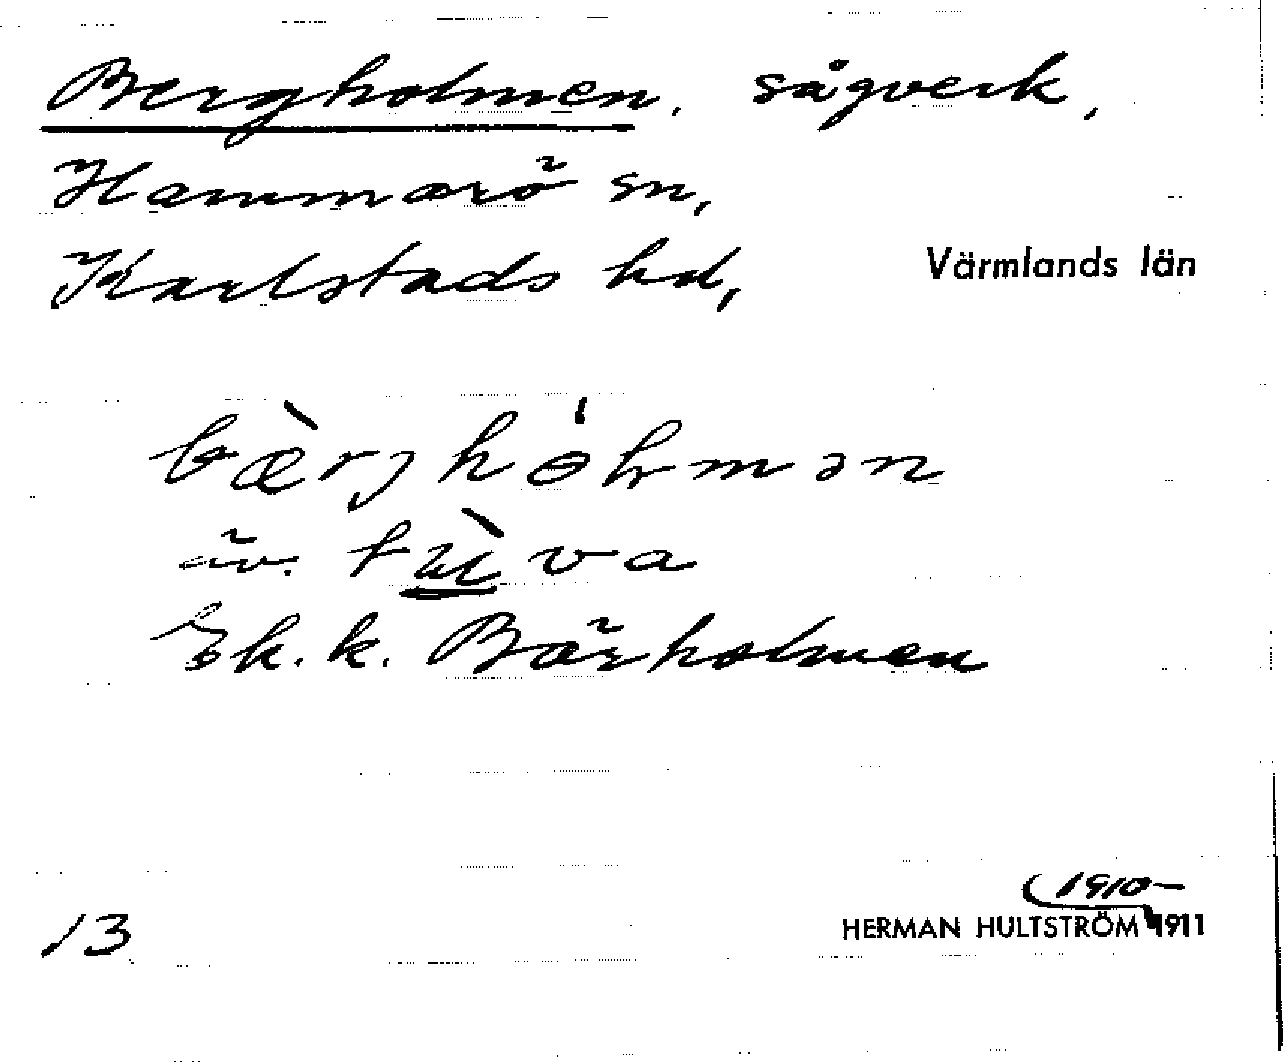 Bergholmen. sågverk,
Hammarö sn,
Karlstads hd, Värmlands län
bæ̀rjhólmən
äv. tùva
Ek. k. Bärholmen
(1910-
13 HERMAN HULTSTRÖM 1911